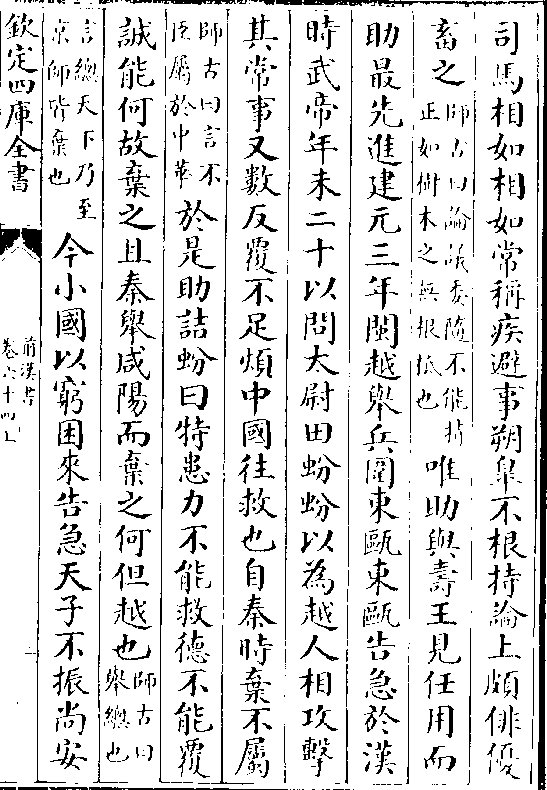 司馬相如相如常稱疾避事朔臯不根持論上頗俳優
畜之師古曰論議委隨不能持正如樹木之無根柢也唯助與壽王見任用而
助最先進建元三年閩越舉兵圍東甌東甌告急於漢
時武帝年未二十以問太尉田蚡蚡以為越人相攻擊
其常事又數反覆不足煩中國往救也自秦時棄不屬
師古曰言不臣屬於中華於是助詰蚡曰特患力不能救德不能覆
誠能何故棄之且秦舉咸陽而棄之何但越也師古曰舉總也
言總天下乃至京師皆棄也今小國以窮困來告急天子不振尚安
欽定四庫全書
前漢書
卷六十四上